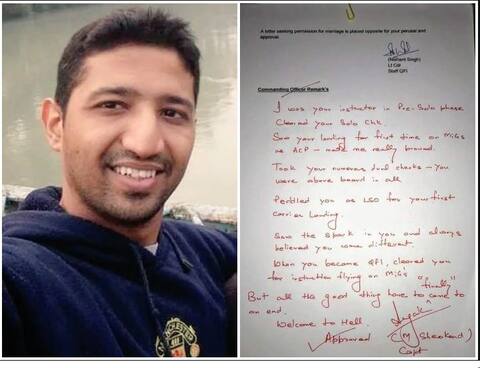 A letter seeking permission for marriage is placed opposite for your perusal and
approval.
(Nishant Singh)
Lt Cdr
Staff QFI
Commanding Officer Remark's
I was your instructor in Pre-Solo phase
Cleared your Solo Chk.
Saw your landing for first time on MiGs
as ACP - made me really proud.
Took your numerous dual checks - you
were above board in all
Peddled you as LSO for your first
Carrier Landing.
Saw the spark in you and always
believed you were different.
When you became QFI, cleared you
for instruction flying on MiGs
"finally"
But all the good thing have to come to
an end.
Welcome to Hell.
Approved
(M Sheokand)
Capt
MANCHESTER